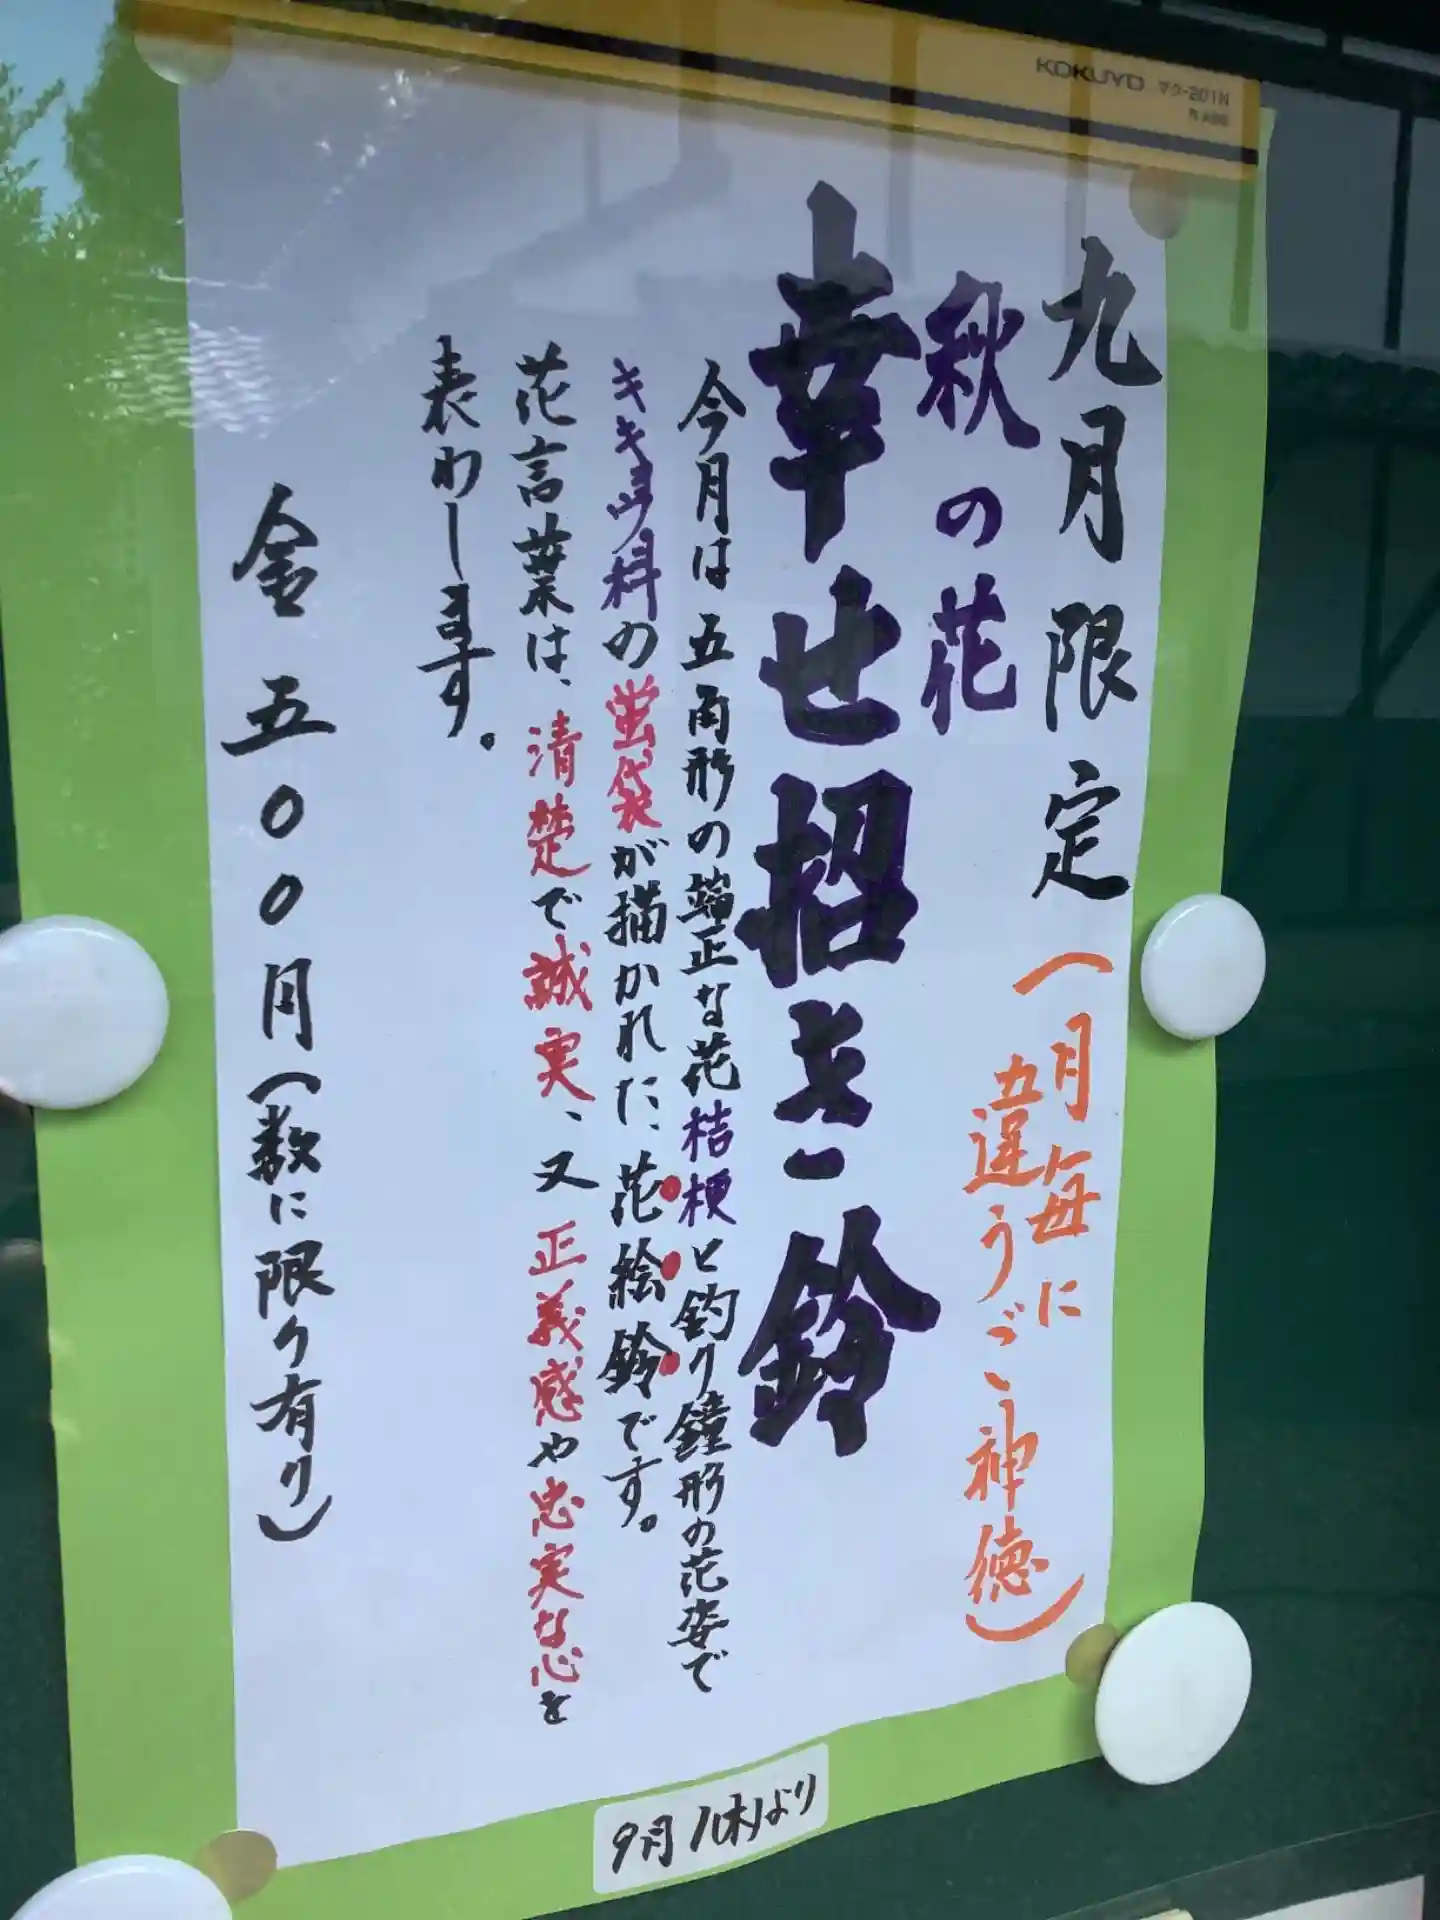 KOKUYO マク-201N
九月限定
(月毎に
違うご神徳)
秋の花
幸せ招き鈴
今月は五角形の端正な花桔梗と釣り鐘形の花姿で
キキョウ科の蛍袋が描かれた、花絵鈴です。
花言葉は、清楚で誠実、又正義感や忠実な心を
表わします。
金五〇〇円(数に限り有り)
9月1(木)より